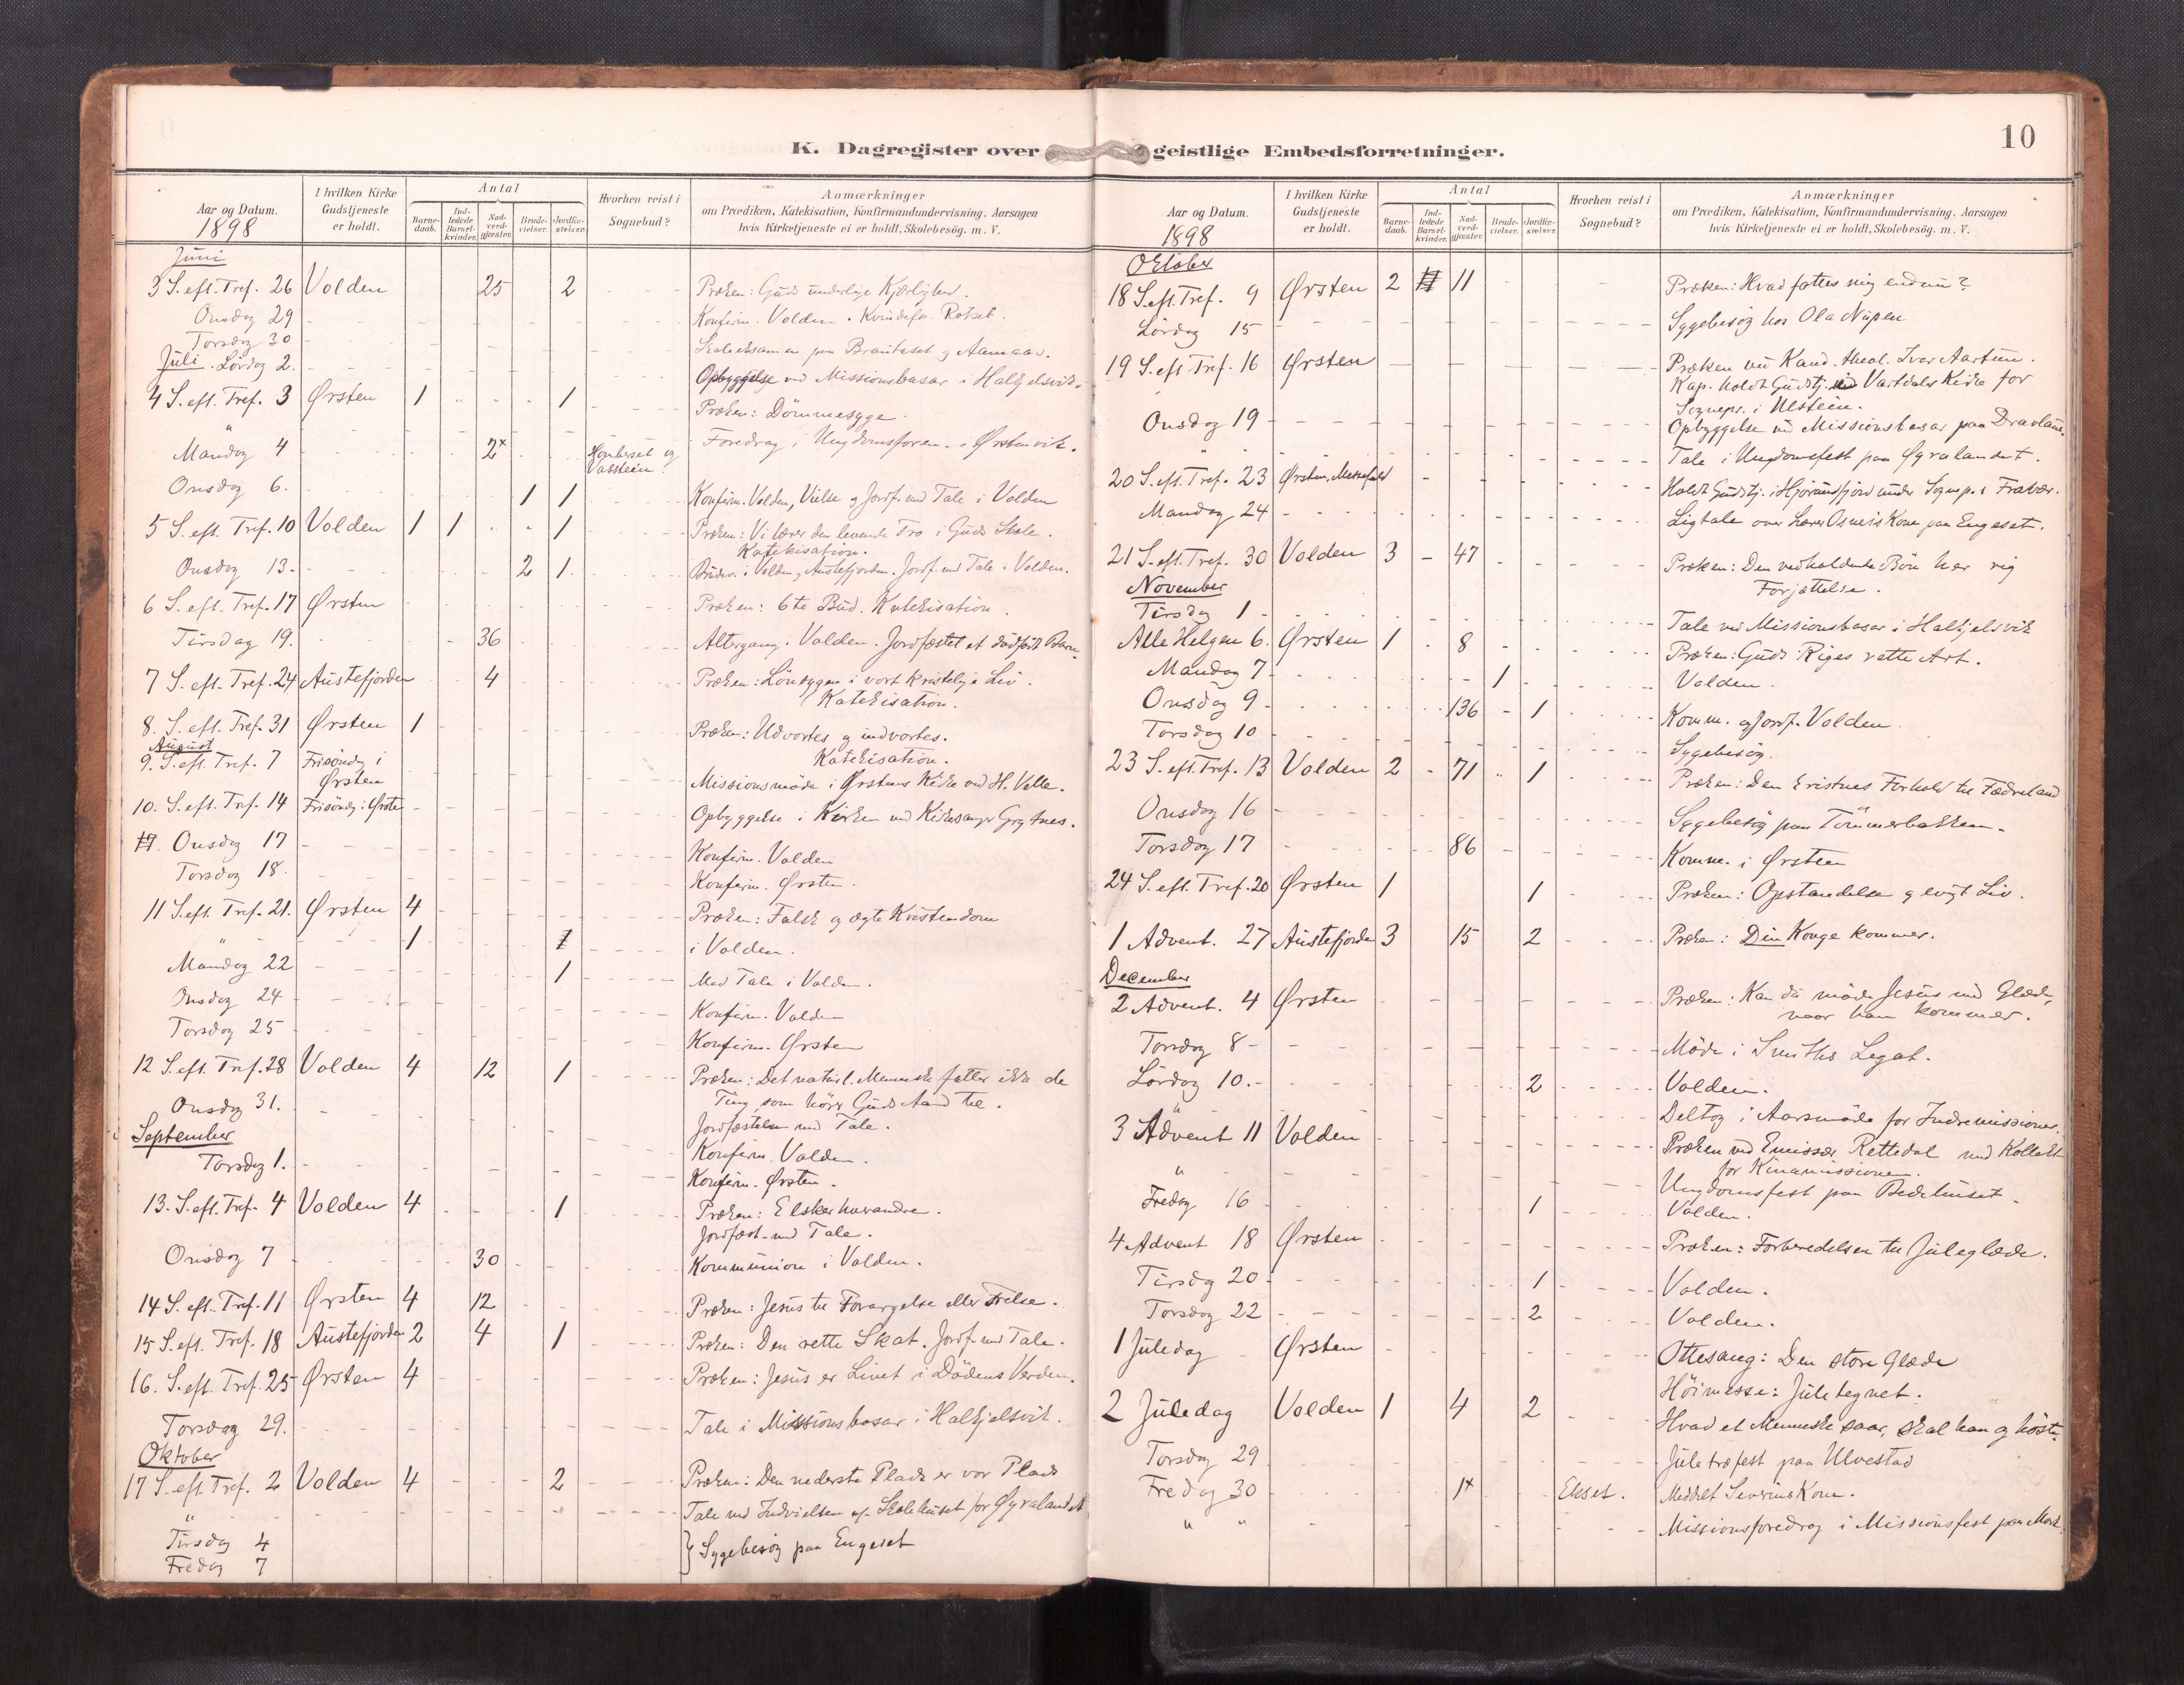 K. Dagregister over geistlige Embedsforretninger.
10
Aar og Datum.
1898
I hvilken Kirke Gudstjeneste er holdt.
Antal
Barnedaab.
Indledede Barselkvinder.
Nadverdgjæster.
Brudevielser.
Jordfæstelser.
Hvorhen reist i Sognebud?
Anmærkninger
om Prædiken, Katekisation, Konfirmandundervisning, Aarsagen
hvis Kirketjeneste ei er holdt, Skolebesøg. m. V.
Juni
3 S. eft. Tref. 26 Volden 25 2 Præken: Guds underlige Kjærlighed.
Onsdag 29 Konfirm. Volden. Kvindefor. Rotset.
Torsdag 30 Skoleeksamen paa og Aamaas.
Juli. Lørdag 2. Opbyggelse ved Missionsbasar i Halkjelsvik.
4 S. eft. Tref. 3 Ørsten 1 1 Præken: Dömmesyge.
" Foredrag i Ungdomsforen. i Ørstenvik.
Mandag 4 2x og Vassteen
Onsdag 6. 1 1 Konfirm. Volden, Vielse og Jordf. med Tale i Volden
5 S. eft. Tref. 10 Volden 1 1 1 Præken: Vi lærer den levende Tro i Guds Skole.
Katekisation.
Onsdag 13 2 1 Brudev. i Volden og Austefjorden. Jordf. med Tale i Volden.
6 S. eft. Tref. 17 Ørsten Præken: 6te Bud. Katekisation.
Tirsdag 19. 36 Altergang. Volden. Jordfæstet et dødfødt Barn.
7 S. eft. Tref. 24 Austefjorden 4 Præken: Löndommen i vort kristelige Liv.
Katekisation.
8. S. eft. Tref. 31 Ørsten 1 Præken: Udvortes og indvortes.
Katekisation.
August
9. S. eft. Tref. 7 Frisöndag i Ørsten Missionsmøde i Ørstens Kirke ved H. Velle.
10. S. eft. Tref. 14 Frisöndag i Ørsten Opbyggelse i Kirken ved Kirkesanger Grytnes.
Onsdag 17 Konfirm. Volden
Torsdag 18. Konfirm. Ørsten.
11 S. eft. Tref. 21. Ørsten 4 Præken: Falsk og ægte Kristendom
" 1 i Volden.
Mandag 22 1 Med Tale i Volden.
Onsdag 24 Konfirm. Volden
Torsdag 25 Konfirm. Ørsten
12 S. eft. Tref. 28 Volden 4 12 1 Præken: Det naturl. Menneske fatter ikke de
Ting, som hører Guds Aand til.
Jordfæstelse med Tale.
Onsdag 31. Konfirm. Volden.
September
Torsdag 1. Konfirm. Ørsten.
13. S. eft. Tref. 4 Volden 4 1 Præken: Elsker hverandre.
Jordfæst. med Tale.
Onsdag 7 30 Kommunion i Volden.
14 S. eft. Tref. 11 Ørsten 4 12 Præken: Jesus til Forargelse eller Frelse.
15 S. eft. Tref. 18 Austefjorden 2 4 1 Præken: Den rette Skat. Jordf. med Tale.
16. S. eft. Tref. 25 Ørsten 4 Præken: Jesus er Livet i Dödens Verden.
Torsdag 29. Tale i Missionsbasar i Halkjelsvik.
Oktober
17 S. eft. Tref. 2 Volden 4 2 Præken: Den nederste Plads er vor Plads
" Tale ved Indvielsen af Skolehuset for Øyralandet
Tirsdag 4
Fredag 7 } Sygebesög paa Engeset
Aar og Datum.
1898
I hvilken Kirke Gudstjeneste er holdt.
Antal
Barnedaab.
Indledede Barselkvinder.
Nadverdgjæster.
Brudevielser.
Jordfæstelser.
Hvorhen reist i Sognebud?
Anmærkninger
om Prædiken, Katekisation, Konfirmandundervisning, Aarsagen
hvis Kirketjeneste ei er holdt, Skolebesøg. m. V.
Oktober
18 S. eft. Tref. 9 Ørsten 2 11 Præken: Hvad fattes mig endnu?
Lördag 15 Sygebesög hos Ola Nupen
19 S. eft. Tref. 16 Ørsten Præken ved Kand. theol. Ivar Aartun.
Kap. holdt Gudstj. ved Vartdals Kirke for
Sognepr. i Ulstein.
Onsdag 19 Opbyggelse ved Missionsbasar paa Dravlaus.
" Tale i Ungdomsfest paa Øyralandet.
20 S. eft. Tref. 23 Ørsten, Messefald Holdt Gudstj. i Hjørundfjord under Sognep.s Fravær.
Mandag 24 Ligtale over Lærer Osneis Kone paa Engeset.
21 S. eft. Tref. 30 Volden 3 47 Præken: Den vedholdende Bön har rig
Forjættelse.
November
Tirsdag 1 Tale ved Missionsbasar i Halkjelsvik
Alle Helgen 6. Ørsten 1 8 Præken: Guds Riges rette Art.
Mandag 7 1 Volden.
Onsdag 9 136 1 Komm. og Jordf. Volden
Torsdag 10 Sygebesög.
23 S. eft. Tref. 13 Volden 2 71 1 Præken: Den kristnes Forhold til Fædreland
Onsdag 16 Sygebesög paa Tömmerbakken.
Torsdag 17 86 Komm. i Ørsten
24 S. eft. Tref. 20 Ørsten 1 1 Præken: Opstandelse og evigt Liv.
1 Advent. 27 Austefjorden 3 15 2 Præken: Din Konge kommer.
December
2 Advent. 4 Ørsten Præken: Kan du møde Jesus med Glæde,
naar han kommer.
Torsdag 8 Møde i Smiths Legat.
Lördag 10. 2 Volden.
" Deltog i Aarsmøde for Indremissionen.
3 Advent 11 Volden Præken ved Emissær Rettedal med Kollekt
for Kinamissionen.
" Ungdomsfest paa Bedehuset.
Fredag 16 1 Volden.
4 Advent 18 Ørsten Præken: Forberedelsen til Juleglæde.
Tirsdag 20 1 Volden.
Torsdag 22 2 Volden.
1 Juledag Ørsten Ottesang: Den store Glæde
Höimesse: Juletegnet.
2 Juledag Volden 1 4 2 Hvad et Menneske saar, skal han og höste.
Torsdag 29 Juletræfest paa Ulvestad
Fredag 30 1x Ekset. Meddelt Severins Kone.
" " Missionsforedrag i Missionsfest paa Mork.